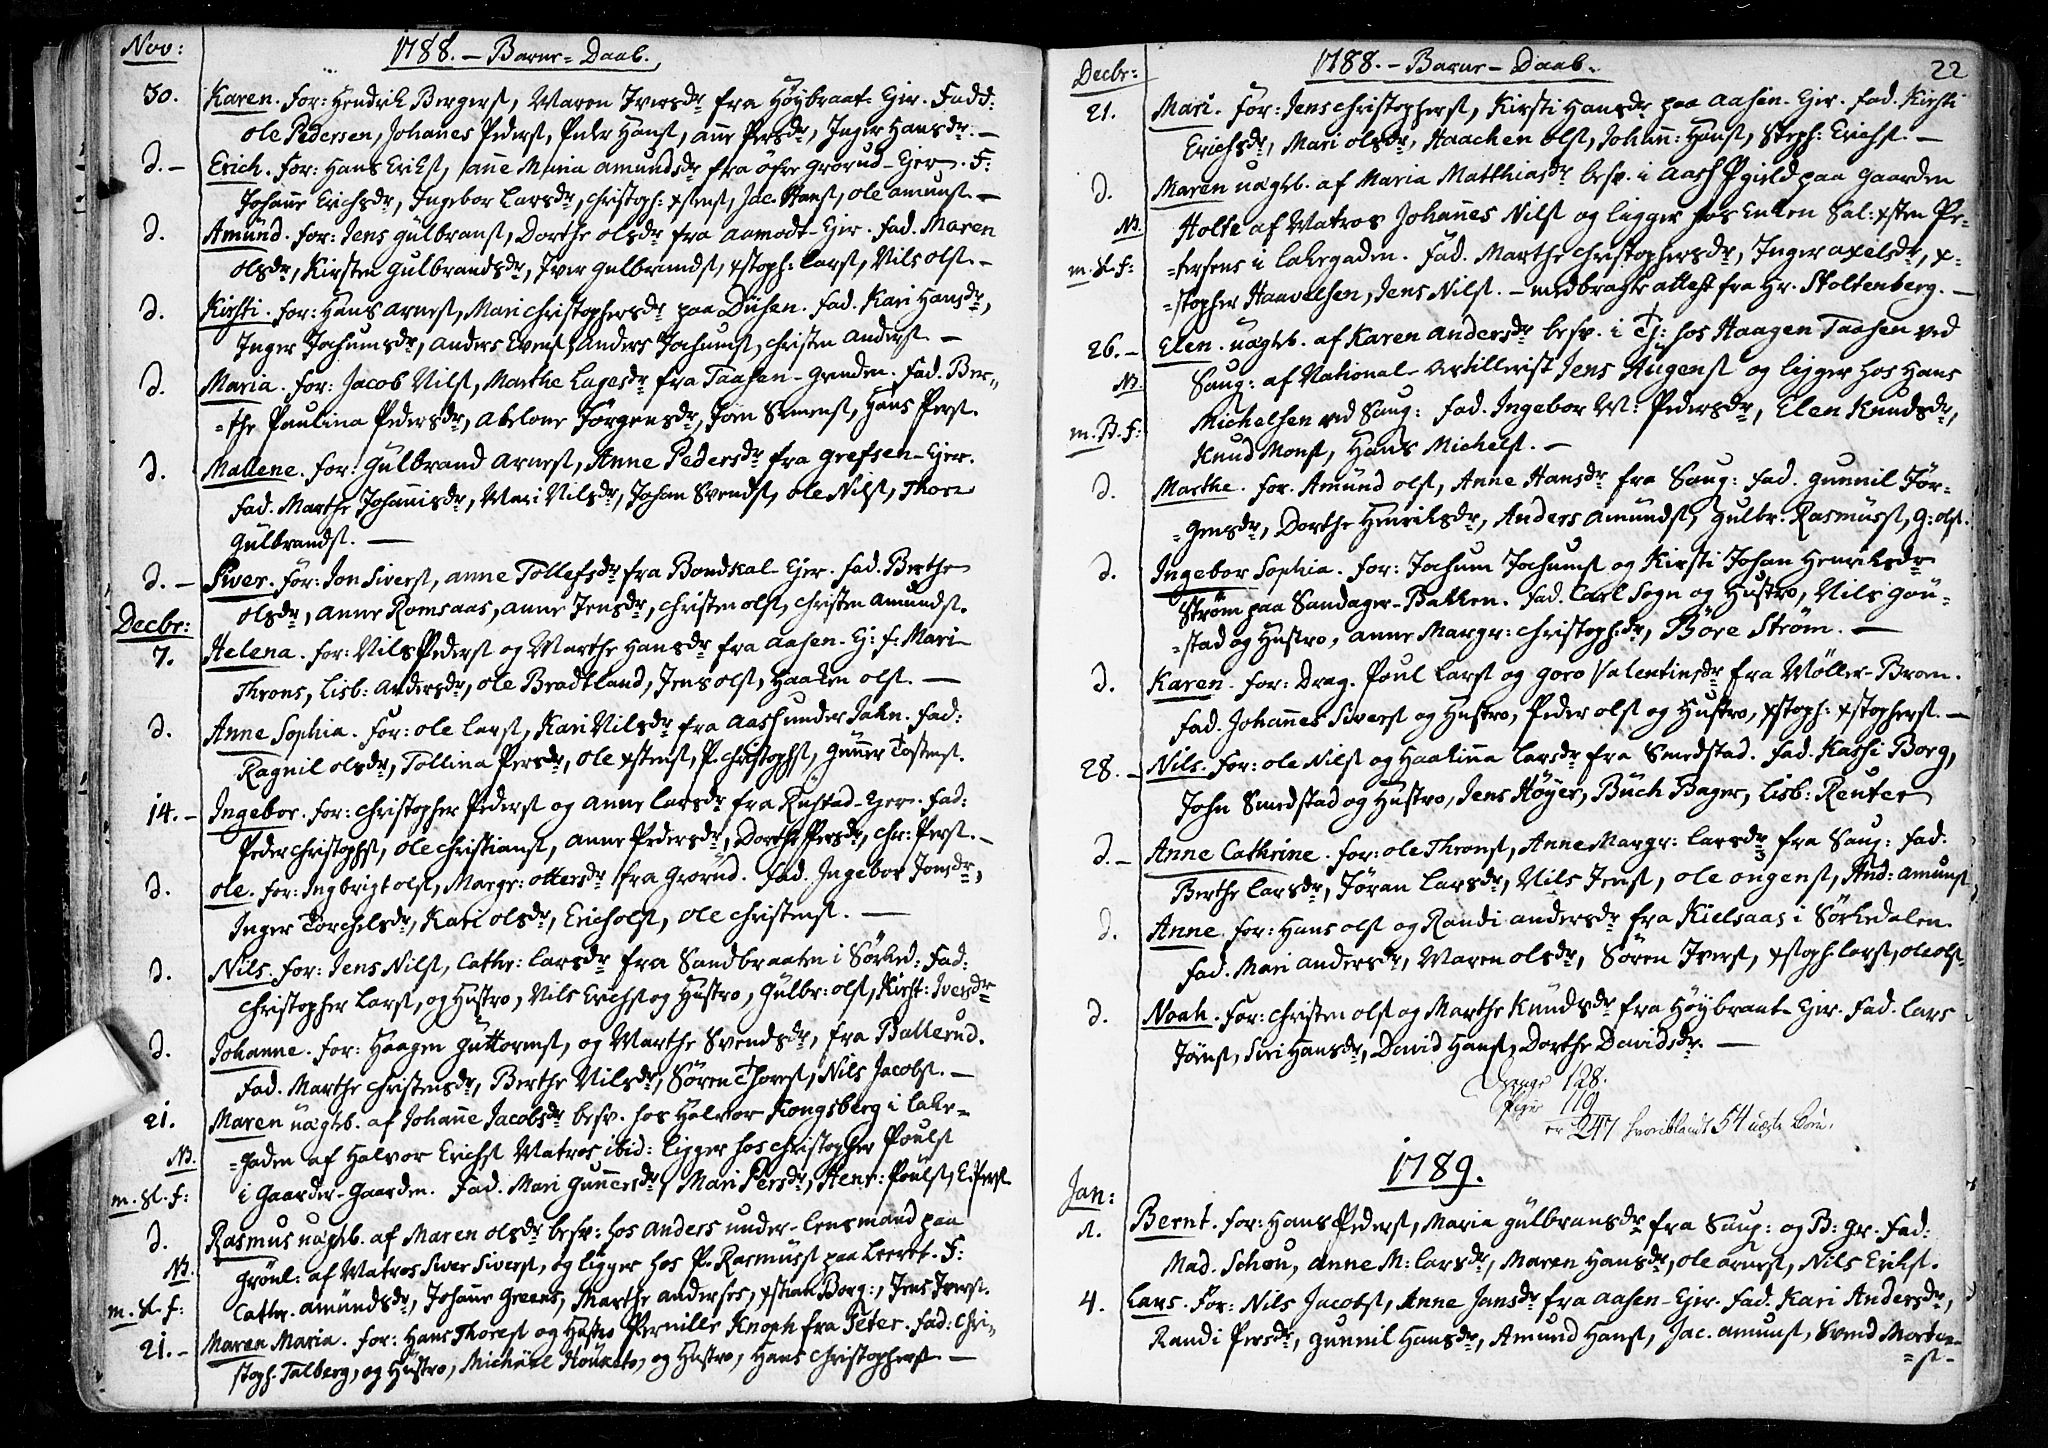 Nov:
1788. – Barne-Daab.
30. Karen. For: Hendrik Bergerst, Maren Iversdr fra Höybraat-Eier. Fadd:
Ole Pedersen, Johanes Pederst, Peder Hanst, Anne Persdr, Inger Hansdr. –
d. – Erich. For: Hans Erikst, Anne Maria Amundsdr fra öfre Grorud-Eier. F:
Johanne Erichsdr, Ingebor Larsdr, Christoph: xstenst, Jac. Hanst, Ole Amunst. –
d. Amünd. For: Jens Gulbranst, Dorthe Olsdr fra Aamodt-Eier. Fad. Maren
Olsdr, Kirsten Gulbrandsdr, Iver Gulbrandst, xstoph: Larst, Nils Olst. –
d. Kirsti. For: Hans Arnest, Mari Christophersdr paa Düsen. Fad. Kari Hansdr,
Inger Jochumsdr, Anders Evenst, Anders Jochumst, Christen Anderst. –
d. Maria. For: Jacob Nilst, Marthe Lagesdr fra Taasen-Grenden. Fad. Ber-
-the Paulina Pedersdr, Abelone Jörgensdr, Joen Simenst, Hans Perst.
d. Mallene. For: Gulbrand Arnest, Anne Pedersdr fra Grefsen-Eier.
Fad. Marthe Johannisdr, Mari Nilsdr, Johan Svendst, Ole Nilst, Thore
Gulbrandst. –
d. – Siver. For: Jon Siverst, Anne Tollefsdr fra Bondkal-Eier. Fad. Berthe
Olsdr, Anne Romsaas, Anne Jensdr, Christen Olst, Christen Amundst.
Decbr:
7. Helena. For: Nils Pederst og Marthe Hansdr fra Aasen-Ei: F: Mari
Throns, Lisb: Andersdr, Ole Bradtland, Jens Olst, Haaken Olst. –
d. Anne Sophia. For: Ole Larst, Kari Nilsdr fra Aas under Jahn. Fad:
Ragnil Olsdr, Tollina Persdr, Ole xstenst, P. Christophst, Gunner Tostenst.
14. – Ingebor. For: Christopher Pederst og Anne Larsdr fra Rustad-Eier. Fad:
Peder Christophst, Ole Christianst, Anne Pedersdr, Dorthe Persdr, Chr: Perst. –
d. Ole. For: Ingbrigt Olst, Margr: Ottersdr fra Grorüd. Fad. Ingebor Jonsdr,
Inger Torchelsdr, Kari Olsdr, Erich Olst, Ole Christenst. –
d. Nils. For: Jens Nilst, Cathr: Larsdr fra Sandbraaten i Sörked: Fad:
Christopher Larst, og Hustro, Nils Erichst og Hustro, Gulbr: Olst, Kirst: Iversdr
d. Johanne. For: Haagen Guttormst, og Marthe Svendsdr, fra Ballerud.
Fad. Marthe Christensdr, Berthe Nilsdr, Sören Thorest, Nils Jacobst. –
21. Maren uægtb. af Johanne Jacobsdr besv. hos Halvor Kongsberg i Lake-
NB. -gaden af Halvor Erichst Matros ibid: ligger hos Christopher Poulst
m. Sl. F: i Gaarder-Gaarden. Fad. Mari Gunnersdr, Mari Persdr, Henr: Poulst, E. Perst
d. Rasmus uægtb. af Maren Olsdr besv: hos Anders under-Lensmand paa
NB. Grönl: af Matros Siver Siverst, og ligger hos P. Rasmüsst paa Leeret. F:
m. Sl. F: Cathr. Amündsdr, Johanne Greens, Marthe Anderses, xstian Borg:, Jens Iverst.
21. – Maren Maria. For: Hans Thorest og Hustro Pernille Knoph fra Teter. Fad: Chri-
stoph. Talberg, og Hustro, Michael, og Hustro, Hans Christopherst –
Decbr:
1788. – Barne-Daab.
22
21. Mari. For: Jens Christopherst, Kirsti Hansdr paa Aasen-Eier. Fad. Kirsti
Erichsdr, Mari Olsdr, Haachen Olst, Johann: Hanst, Steph: Erichst. –
d. Maren uægtb. af Maria Matthiasdr besv. i Aas Pgield paa Gaarden
NB. Holte af Matros Johanes Nilst og ligger hos Enken Sal: xsten Pe-
m. Sl. F: -tersens i Lakegaden. Fad. Marthe Christophersdr, Inger Axelsdr, x-
-stopher Haavelsen, Jens Nilst. – medbragte attest fra Hr. Stoltenberg. –
26. – Elen. uægtb. af Karen Andersdr besv. i Tj: hos Haagen Taasen ved
NB. Saug: af National-Artillerist Jens Haügenst og ligger hos Hans
m. B. F: Michelsen ved Saug: Fad. Ingebor M: Pedersdr, Elen Knudsdr,
Knud Monst, Hans Michelst. –
d. Marthe. For. Amünd Olst, Anne Hansdr fra Saug: Fad. Gunnil Jör-
-gensdr, Dorthe Henriksdr, Anders Amündst, Gulbr. Rasmüsst, G: Olst.
d. Ingebor Sophia. For: Jochum Jochumst og Kirsti Johan Henriksdr
Ström paa Sandager-Bakken. Fad. Carl Sogn og Hustro, Nils Gou-
-stad og Hustro, Anne Margr: Christoph:dr, Böre Ström. –
d. Karen. For: Drag. Poul Larst og Goro Valentinsdr fra Möller-Broen.
Fad. Johannes Siverst og Hustro, Peder Olst og Hustro, xstoph: xstopherst. –
28. – Nils. For: Ole Nilst og Haakinna Larsdr fra Smedstad. Fad. Kathi Borg,
John Smedstad og Hustro, Jens Höyer, Büch Bager, Lisb: Reuter
d. – Anne Cathrine. For: Ole Thronst, Anne Margr: Larsdr fra Saug: Fad.
Berthe Larsdr, Jöran Larsdr, Nils Jenst, Ole Ongenst, And: Amunst
d. Anne. For: Hans Olst og Randi Andersdr fra Kielsaas i Sörkedalen
Fad. Mari Andersdr, Maren Olsdr, Sören Iverst, xstoph: Larst, Ole Olst.
d. Noah. For: Christen Olst og Marthe Knudsdr fra Höybraat-Eier. Fad. Lars
Jönst, Siri Hansdr, David Hanst, Dorthe Davidsdr. –
Drenge 128.
Piger 119
er 247 hvoriblandt 54 uægte Börn.
1789.
Jan:
1. Bernt. For: Hans Pederst, Maria Gülbransdr fra Saug: og B: Gr. Fad:
Mad. Schou, Anne M: Larsdr, Maren Hansdr, Ole Arnest, Nils Erikst.
4. Lars. For: Nils Jacobst, Anne Jansdr fra Aasen-Eier. Fad: Kari Andersdr,
Randi Persdr, Gunnil Hansdr, Amund Hanst, Jac. Amunst, Svend Morten-
-st.